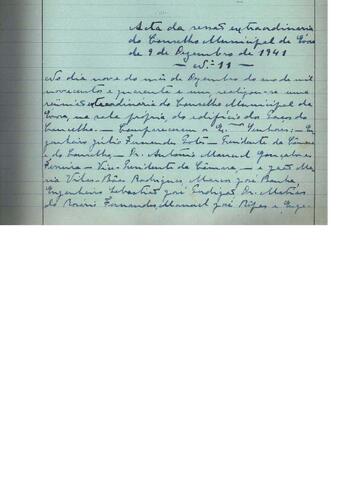 Acta da sessão extraordinaria
do Conselho Municipal de
de 9 de Dezembro de 1941
— Nº 11 —
No dia nove do mês de Dezembro do ano de mil
novecentos e quarenta e um, realizou-se uma
reünião extraordinaria do Conselho Municipal de
na sala propria, do edificio dos Paços do
Concelho. — Compareceram os Senhores: — En-
genheiro Júlio Fernandes — Presidente da Câmara
e do Conselho — Dr. António Manuel Gonçalves
Ferreira — Vice-Presidente da Câmara, — e
Rodrigues, Marcos José
Engenheiro Sebastião José Dr. Matias
do Fernandes, Manuel José e Enge-